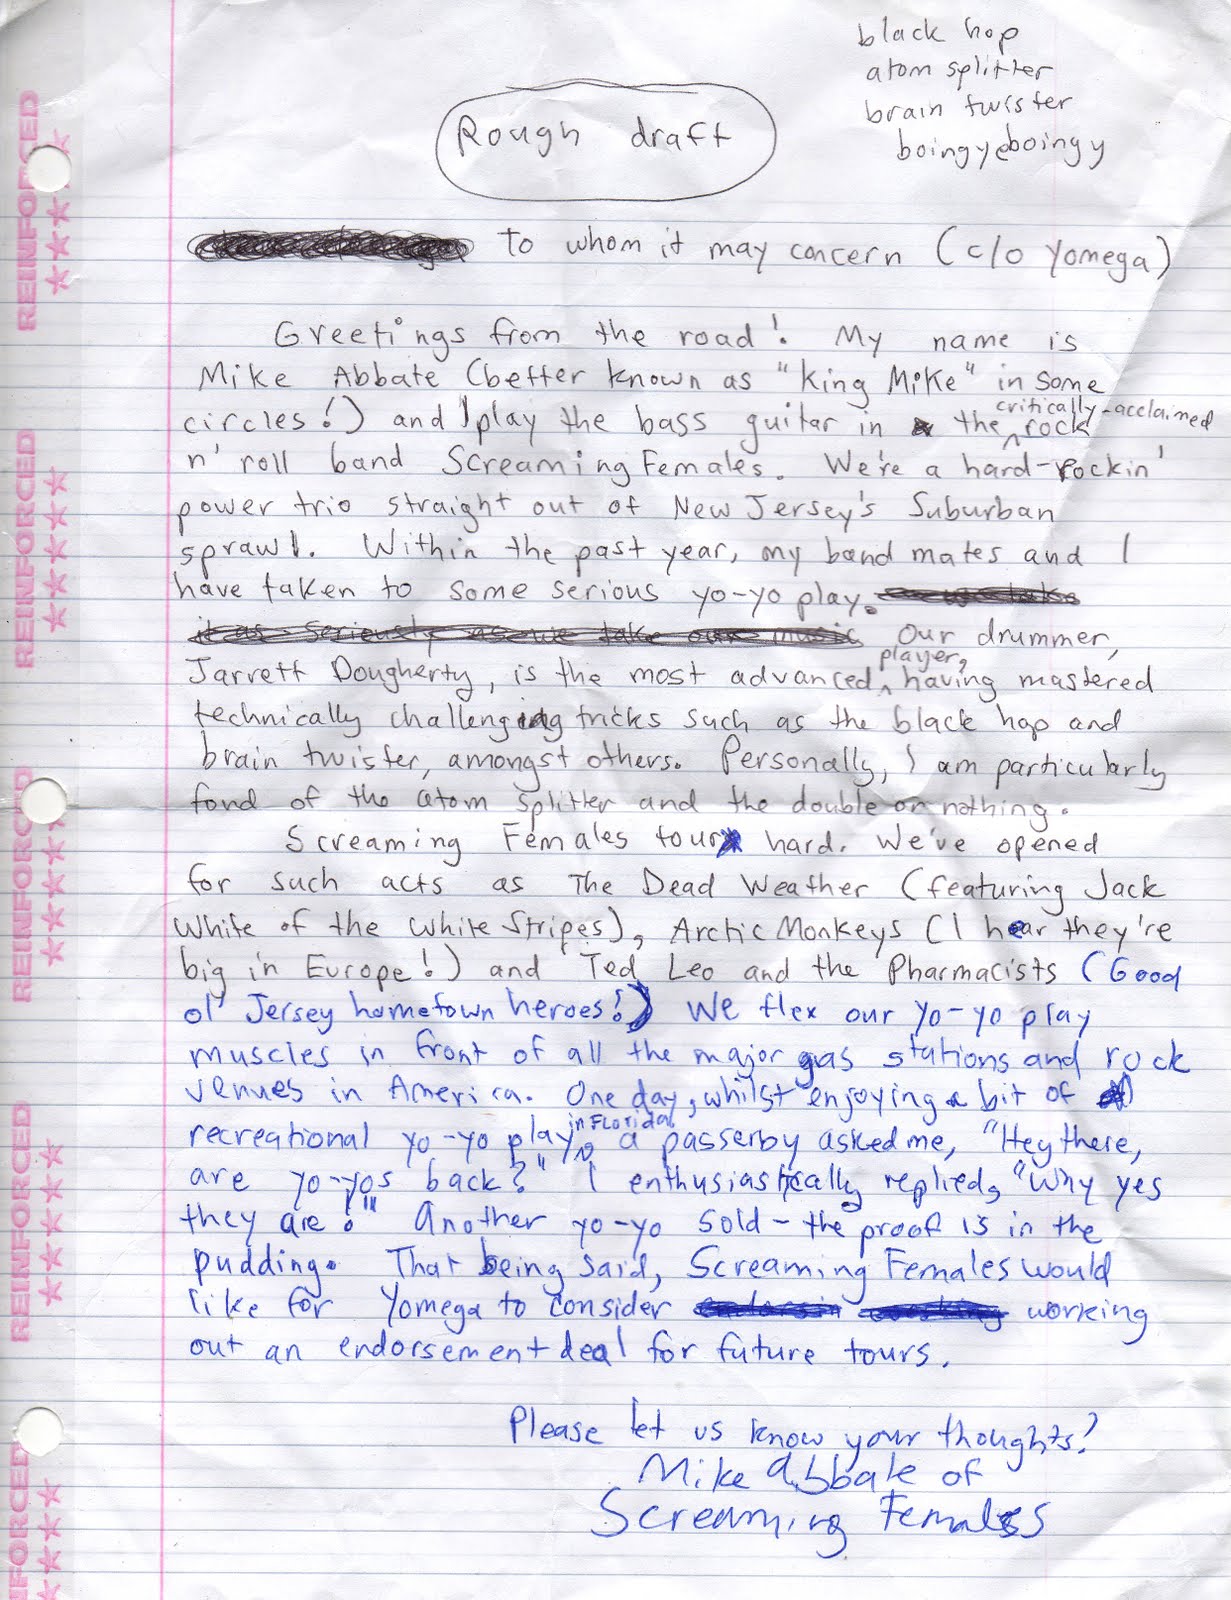 black hop
atom splitter
brain twister
boingyeboingy
Rough draft
To whom it may concern (c/o Yomega)
Greetings from the road! My name is
Mike Abbate (better known as "King Mike" in some
circles!) and I play the bass guitar in the critically-acclaimed rock
n' roll band Screaming Females. We're a hard-rockin'
power trio straight out of New Jersey's Suburban
sprawl. Within the past year, my band mates and I
have taken to some serious yo-yo play. we take
it as seriously as we take our music Our drummer,
Jarrett Dougherty, is the most advanced player, having mastered
technically challenging tricks such as the black hop and
brain twister, amongst others. Personally, I am particularly
fond of the atom splitter and the double or nothing.
Screaming Females tour hard. We've opened
for such acts as The Dead Weather (featuring Jack
White of the White Stripes), Arctic Monkeys (I hear they're
big in Europe!) and Ted Leo and the Pharmacists (Good
ol' Jersey hometown heroes!) We flex our yo-yo play
muscles in front of all the major gas stations and rock
venues in America. One day, whilst enjoying a bit of
recreational yo-yo play in Florida, a passerby asked me, "Hey there,
are yo-yos back?" I enthusiastically replied, "Why yes
they are!" Another yo-yo sold - the proof is in the
pudding. That being said, Screaming Females would
like for Yomega to consider endorsin working working
out an endorsement deal for future tours.
Please let us know your thoughts!
Mike Abbate of
Screaming Females
REINFORCED
REINFORCED
REINFORCED
REINFORCED
FORCED